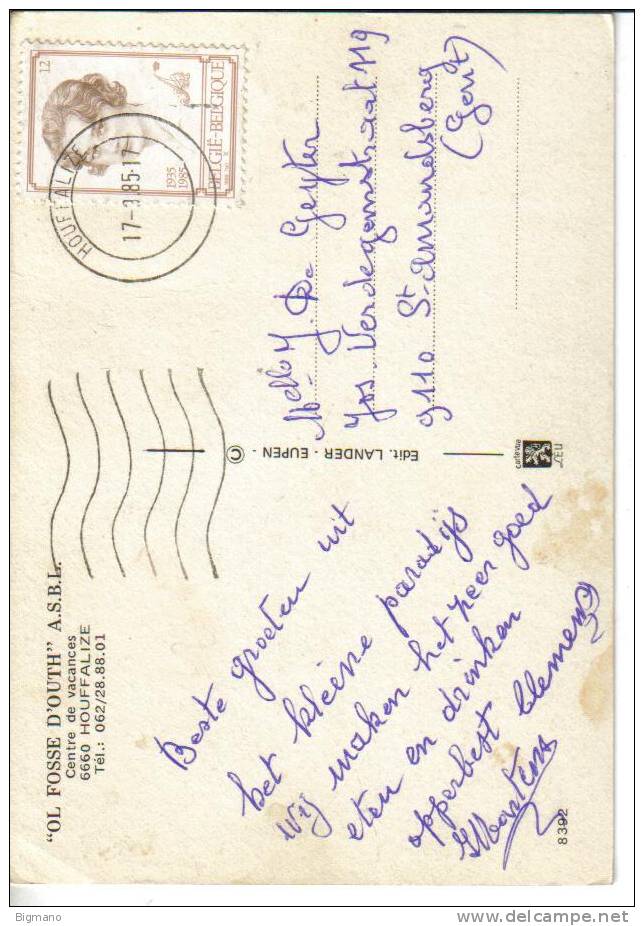 "OL FOSSE D'OUTH" A.S.B.L.
Centre de vacances
6660 HOUFFALIZE
Tél.: 062/28.88.01
Beste groeten uit
het kleine paradijs
wij maken het heer goed
eten en drinken
opperbest Clemens
Martens
8392
Edit. LANDER - EUPEN - ©
carte vue
LEU
12
1935
1985
BELGIË-BELGIQUE
HOUFFALIZE
17-9.85-17
Melle M. De Geyter
Jos. Verdegemstraat 119
9110 St. Amandsberg
(Gent)
Bigmano
www.delcampe.net